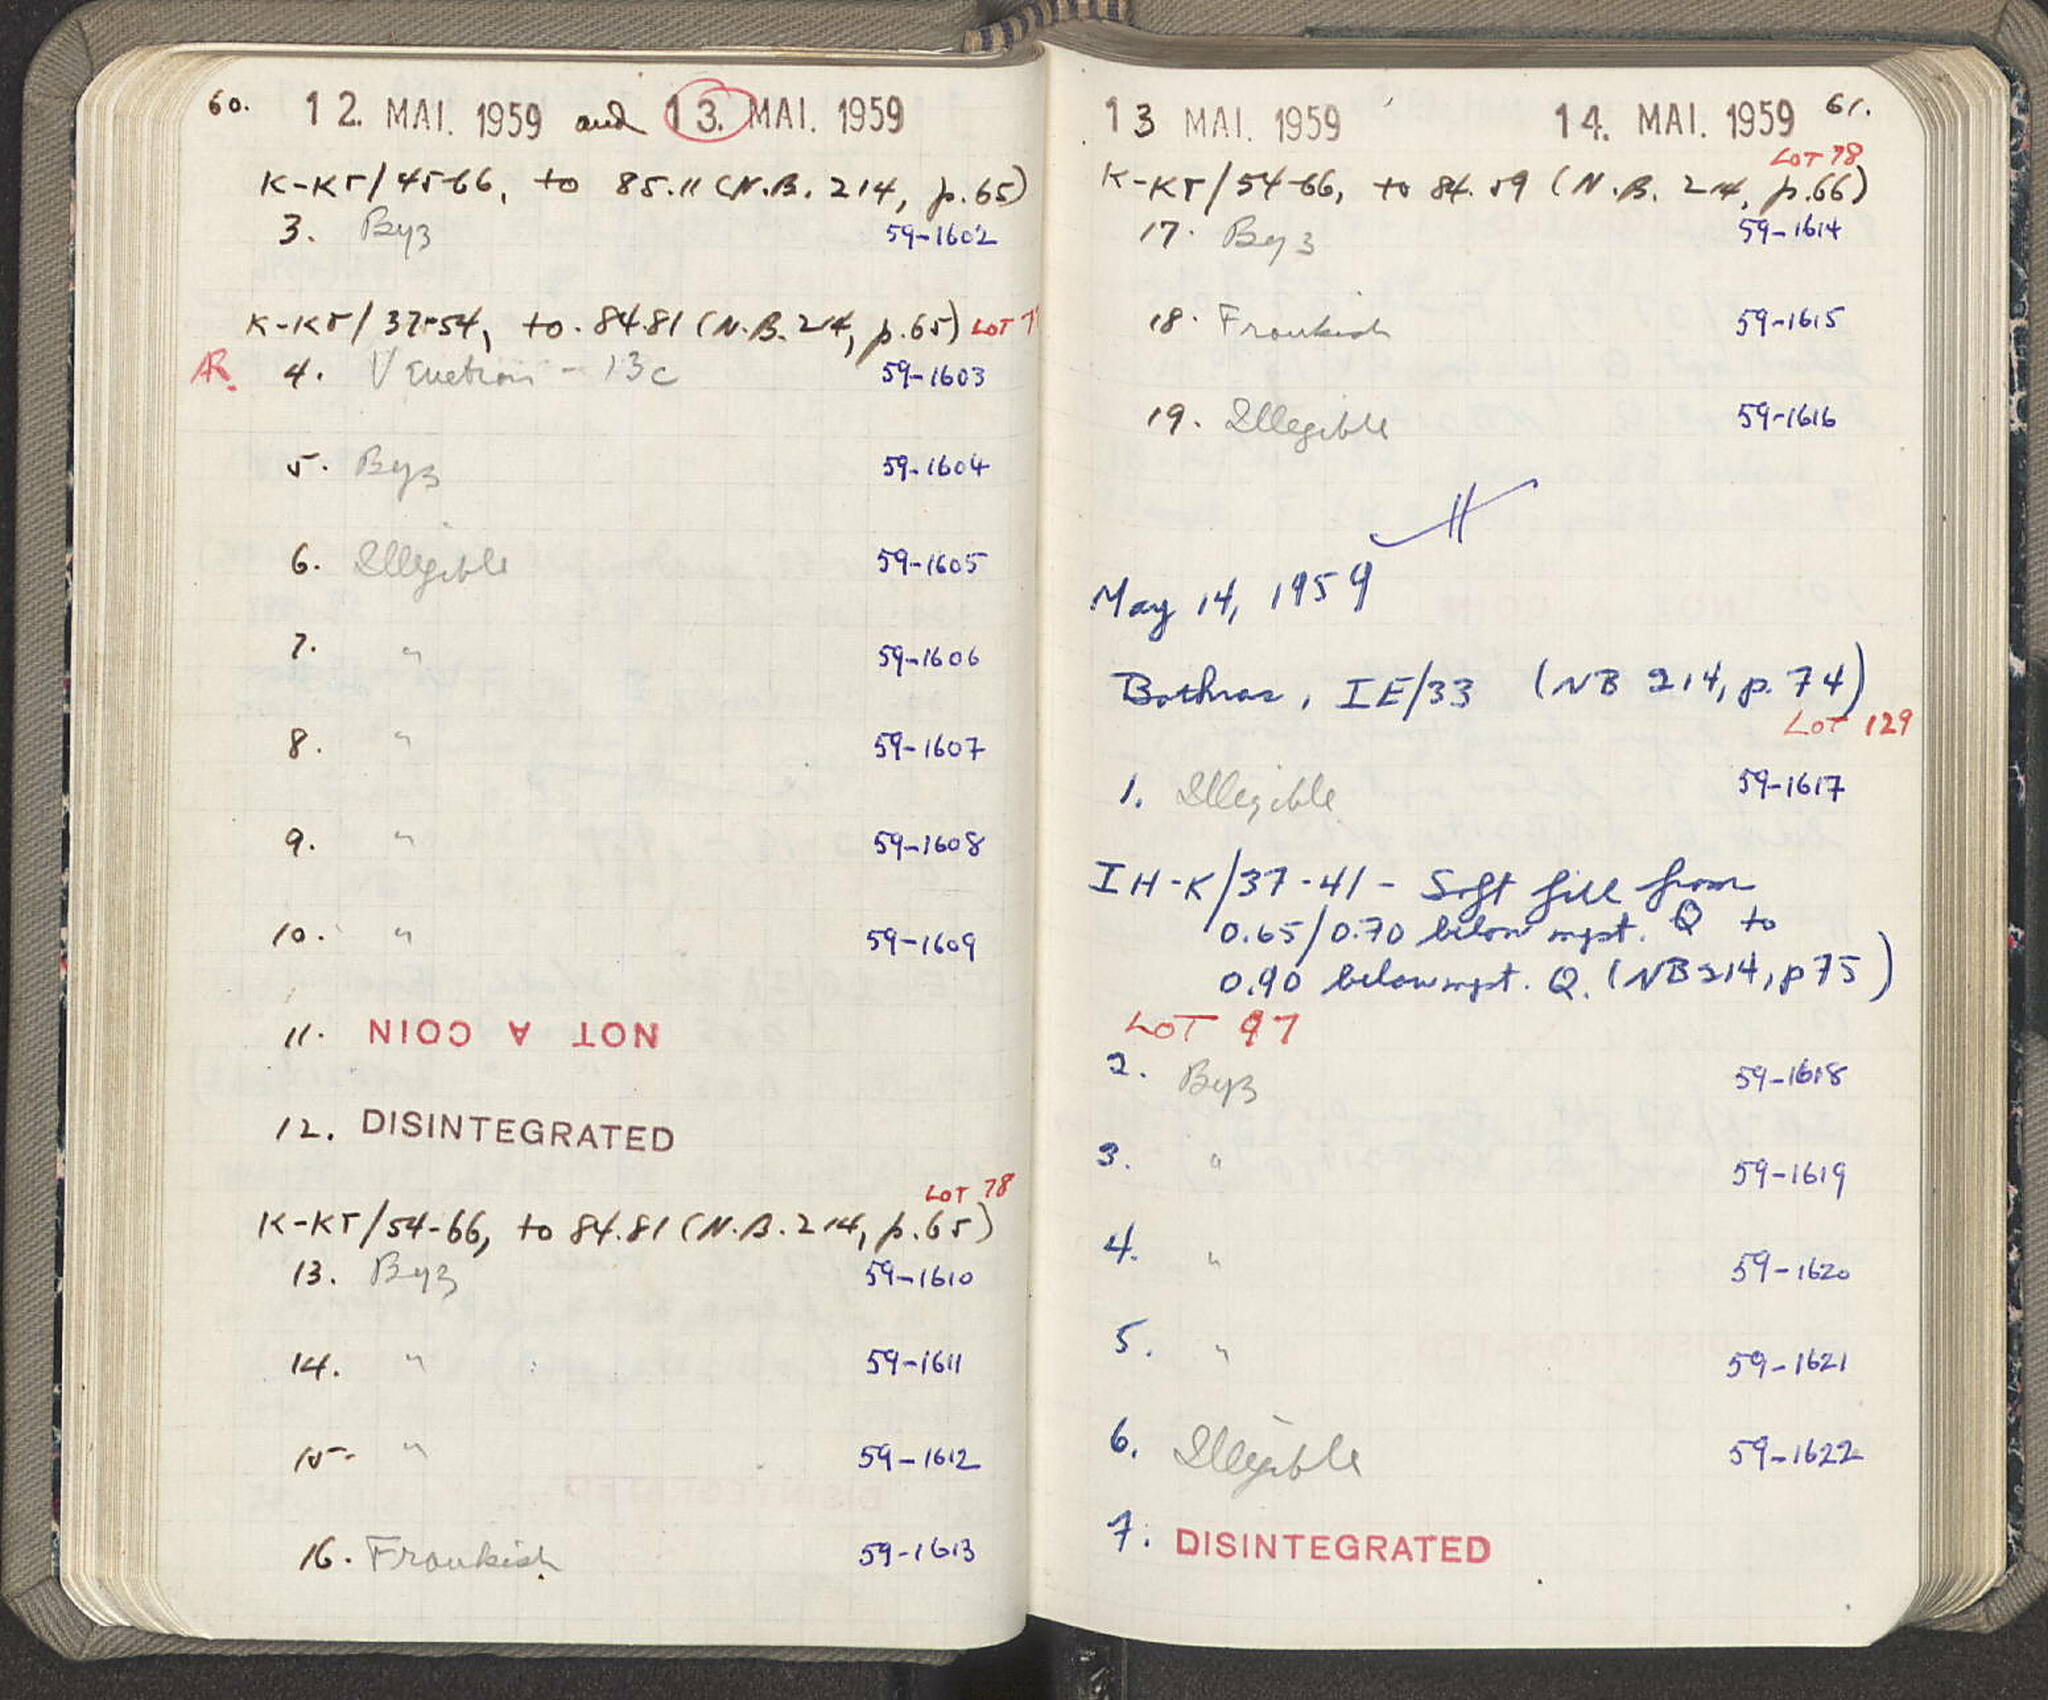 60. 12. MAI. 1959 and 13. MAI. 1959
K-KT/45-66, to 85.11 (N.B. 214, p.65)
3. Byz 59-1602
K-KT/37-54, to 84.81 (N.B. 214, p.65) LOT
AR. 4. Venetian - 13c 59-1603
5. Byz 59-1604
6. Illegible 59-1605
7. " 59-1606
8. " 59-1607
9. " 59-1608
10. " 59-1609
11. NOT A COIN
12. DISINTEGRATED
LOT 78
K-KT/54-66, to 84.81 (N.B. 214, p.65)
13. Byz 59-1610
14. " 59-1611
15. " 59-1612
16. Frankish 59-1613
13 MAI. 1959 14. MAI. 1959 61.
LOT 78
K-KT/54-66, to 84.59 (N.B. 214, p.66)
17. Byz 59-1614
18. Frankish 59-1615
19. Illegible 59-1616
May 14, 1959
Bothros, IE/33 (NB 214, p. 74)
LOT 129
1. Illegible 59-1617
IH-K/37-41 - Soft fill from
0.65/0.70 below mgst. Q to
0.90 below mgst. Q. (NB 214, p75)
LOT 97
2. Byz 59-1618
3. " 59-1619
4. " 59-1620
5. " 59-1621
6. Illegible 59-1622
7. DISINTEGRATED